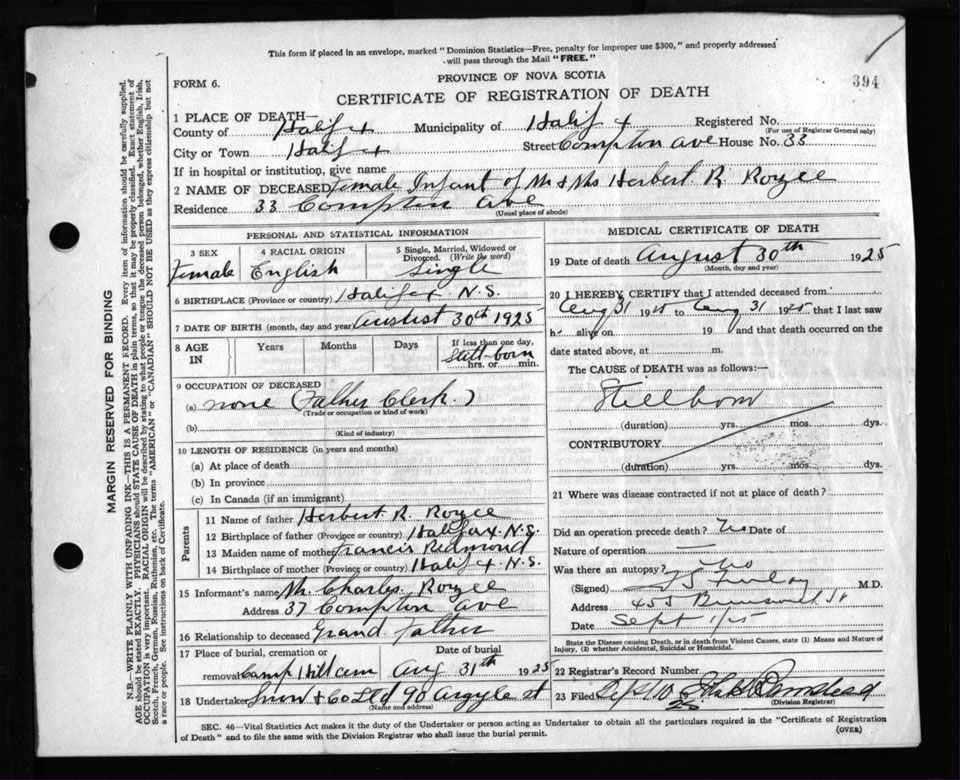 This form if placed in an envelope, marked "Dominion Statistics—Free, penalty for improper use $300," and properly addressed
will pass through the Mail "FREE."
PROVINCE OF NOVA SCOTIA
FORM 6.
394
CERTIFICATE OF REGISTRATION OF DEATH
1 PLACE OF DEATH—
County of Halifax Municipality of Halifax Registered No.
(For use of Registrar General only)
City or Town Halifax Street Compton Ave House No. 33
If in hospital or institution, give name
2 NAME OF DECEASED Female Infant of Mr & Mrs Herbert R Royee
Residence 33 Compton Ave
(Usual place of abode)
PERSONAL AND STATISTICAL INFORMATION
3 SEX 4 RACIAL ORIGIN 5 Single, Married, Widowed or Divorced. (Write the word)
Female English Single
6 BIRTHPLACE (Province or country) Halifax N.S.
7 DATE OF BIRTH (month, day and year) August 30th 1925
8 AGE IN Years Months Days If less than one day
Still-born
hrs. or min.
9 OCCUPATION OF DECEASED
(a) none (Father Clerk.)
(Trade or occupation or kind of work)
(b)
(Kind of industry)
10 LENGTH OF RESIDENCE (in years and months)
(a) At place of death
(b) In province
(c) In Canada (if an immigrant)
Parents
11 Name of father Herbert R. Royee
12 Birthplace of father (Province or country) Halifax N.S.
13 Maiden name of mother Francis Redmond
14 Birthplace of mother (Province or country) Halifax N.S.
15 Informant's name Mr Charles Royee
Address 37 Compton Ave
16 Relationship to deceased Grand Father
17 Place of burial, cremation or removal Date of burial
Camp Hill Aug 31th 1925
18 Undertaker Snow & Co Ltd 90 Argyle st
(Name and address)
MEDICAL CERTIFICATE OF DEATH
19 Date of death August 30th 1925
(Month, day and year)
20 I HEREBY CERTIFY that I attended deceased from
Aug 31 1925 to Aug 31 1925 that I last saw
h alive on 19 and that death occurred on the
date stated above, at m.
The CAUSE of DEATH was as follows:—
Stillborn
(duration) yrs. mos. dys.
CONTRIBUTORY
(duration) yrs. mos. dys.
21 Where was disease contracted if not at place of death?
Did an operation precede death? No Date of
Nature of operation —
Was there an autopsy? No
(Signed) M.D.
Address 455 Brunswick St
Date Sept 1/25
State the Disease causing Death, or in death from Violent Causes, state (1) Means and Nature of
Injury, (2) whether Accidental, Suicidal or Homicidal.
22 Registrar's Record Number
23 Filed
(Division Registrar)
SEC. 46—Vital Statistics Act makes it the duty of the Undertaker or person acting as Undertaker to obtain all the particulars required in the "Certificate of Registration
of Death" and to file the same with the Division Registrar who shall issue the burial permit.
(OVER)
MARGIN RESERVED FOR BINDING
N.B.—WRITE PLAINLY WITH UNFADING INK—THIS IS A PERMANENT RECORD. Every item of information should be carefully supplied.
AGE should be stated EXACTLY. PHYSICIANS should STATE CAUSE OF DEATH in plain terms, so that it may be properly classified. Exact statement of
OCCUPATION is very important. RACIAL ORIGIN will be described by stating to what people or tongue the deceased person belonged, whether English, Irish,
Scotch, French, German, Russian, Ruthenian, etc. The terms "AMERICAN" or "CANADIAN" SHOULD NOT BE USED as they express citizenship but not
a race or people. See instructions on back of Certificate.